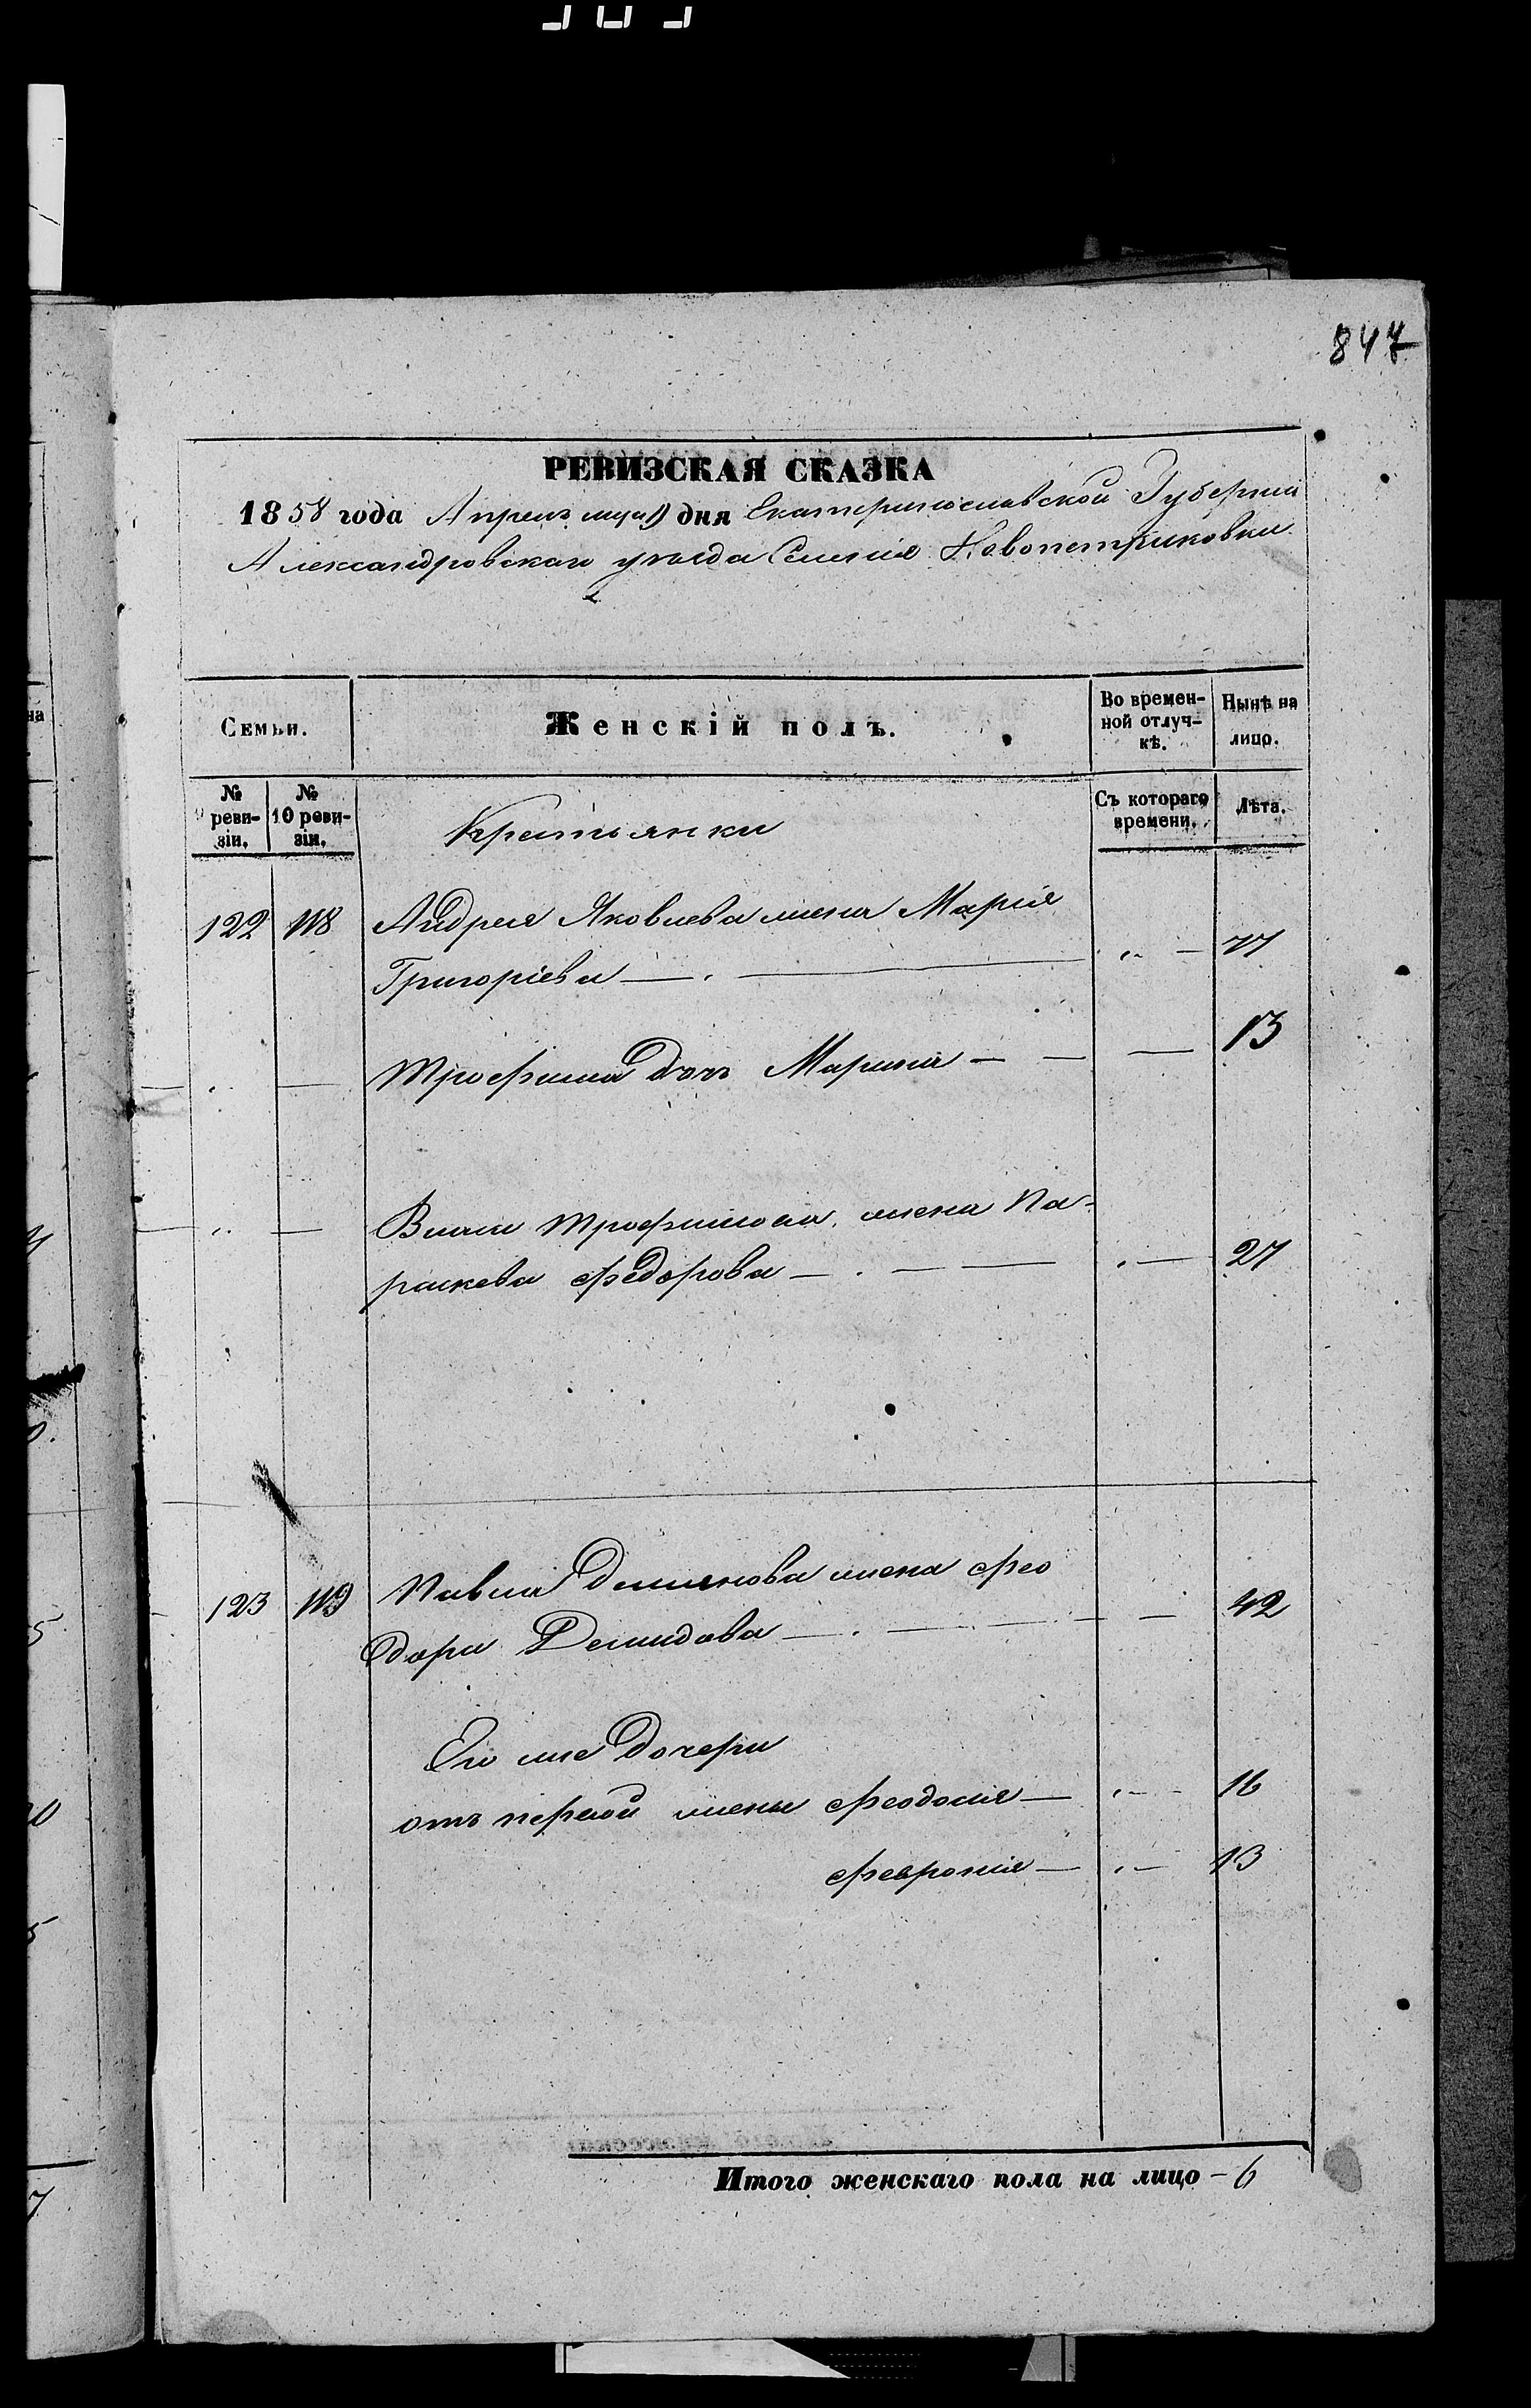 847
РЕВИЗСКАЯ СКАЗКА
1858 года Апреля дня Екатеринославской Губерніи
Александровскаго уезда Селенія Новопетриковки
Семьи. Женскій полъ. Во времен-ной отлуч-кѣ. Нынѣ на лицо.
№ реви-зіи. № 10 реви-зіи. Крестьянки Съ котораго времени. Лѣта.
122 118 Андрея Яковлева жена Марія
Григоріева — . — „ — 77
— . — Трофима дочь Марина — — — 13
— „ — Трофимова жена Па-
раскева Федорова — . — — . — 27
123 119 Павла Демянова жена Фео
дора Демидова — . — — — 42
Его же дочери
отъ первой жены Феодосія — . — 16
Феврония — . — 13
Итого женскаго пола на лицо – 6